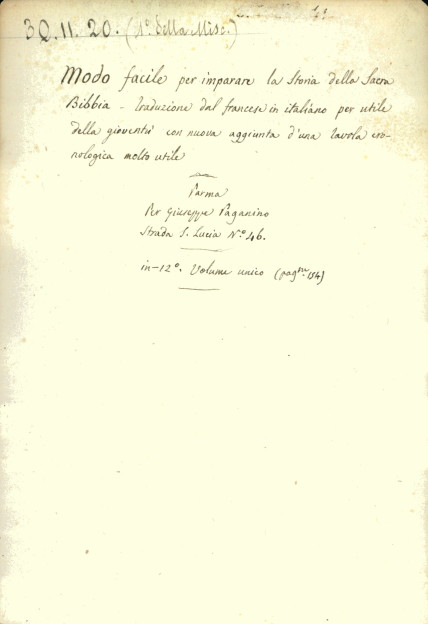 3Q.11.20. (1º della Misc.)
Modo facile per imparare la Storia della Sacra
Bibbia - traduzione dal francese in italiano per utile
della gioventù con nuova aggiunta d'una tavola cro-
nologica molto utile
Parma
Per Giuseppe Paganino
Strada S. Lucia Nº 46.
in-12º. Volume unico (pagne 154)